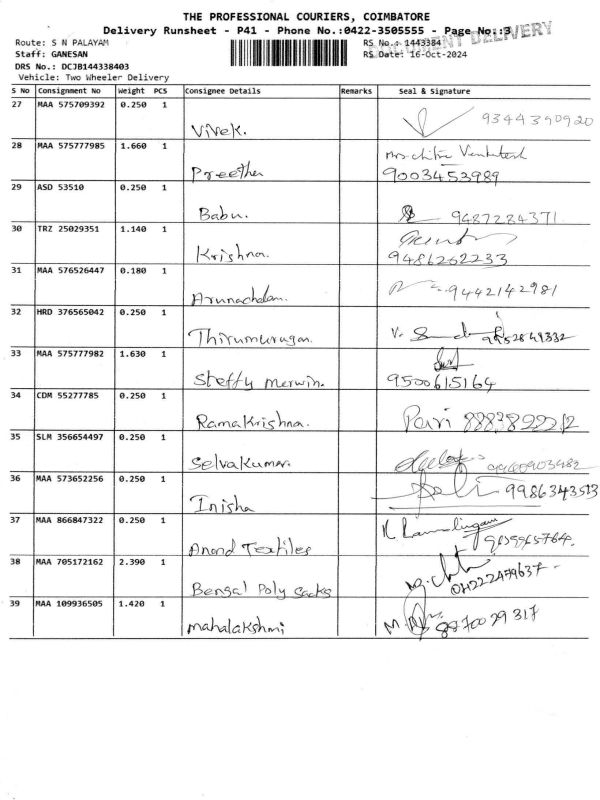 THE PROFESSIONAL COURIERS, COIMBATORE
Delivery Runsheet - P41 - Phone No.:0422-3505555 - Page No.:3
DOCUMENT DELIVERY
Route: S N PALAYAM RS No.: 1443384
Staff: GANESAN RS Date: 16-Oct-2024
DRS No.: DCJB144338403
Vehicle: Two Wheeler Delivery
S No Consignment No Weight PCS Consignee Details Remarks Seal & Signature
27 MAA 575709392 0.250 1
Vivek. 9344390920
28 MAA 575777985 1.660 1
Mrs.chitra Venkatesh
Preetha 9003453989
29 ASD 53510 0.250 1
Babu. 9487284371
30 TRZ 25029351 1.140 1
Krishna. 9486262233
31 MAA 576526447 0.180 1
Arunachalam. 9442142981
32 HRD 376565042 0.250 1
Thirumurugan. 9952849332
33 MAA 575777982 1.630 1
Steffy merwin. 9500615164
34 CDM 55277785 0.250 1
Ramakrishna.
35 SLM 356654497 0.250 1
Selvakumar.
36 MAA 573652256 0.250 1
Inisha 9986343513
37 MAA 866847322 0.250 1
Anand Textiles
38 MAA 705172162 2.390 1
Bengal Poly sacks
39 MAA 109936505 1.420 1
mahalakshmi 8870029317